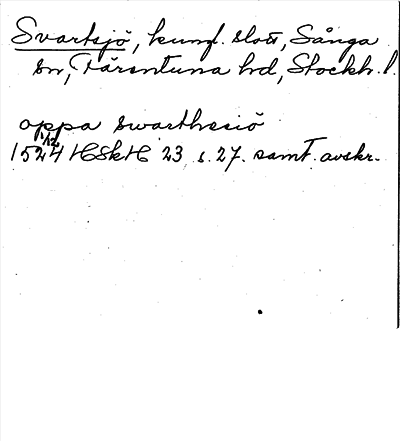 Svartsjö, kungl. slott, Sånga
sn, Färentuna hd, Stockh. l.
oppa swarthesiö
1524 1/12 HSkH 23 s. 27. samt. avskr.